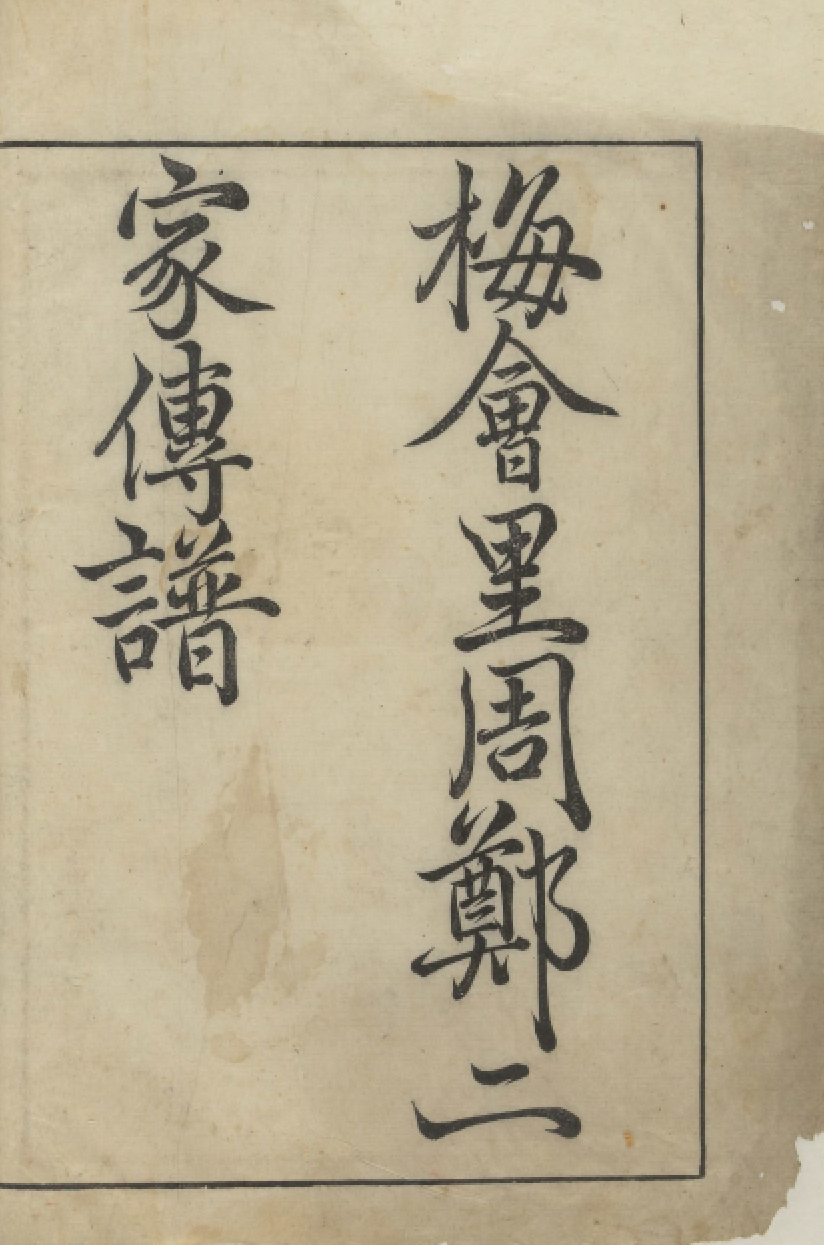 梅會里周鄭二
家傳譜